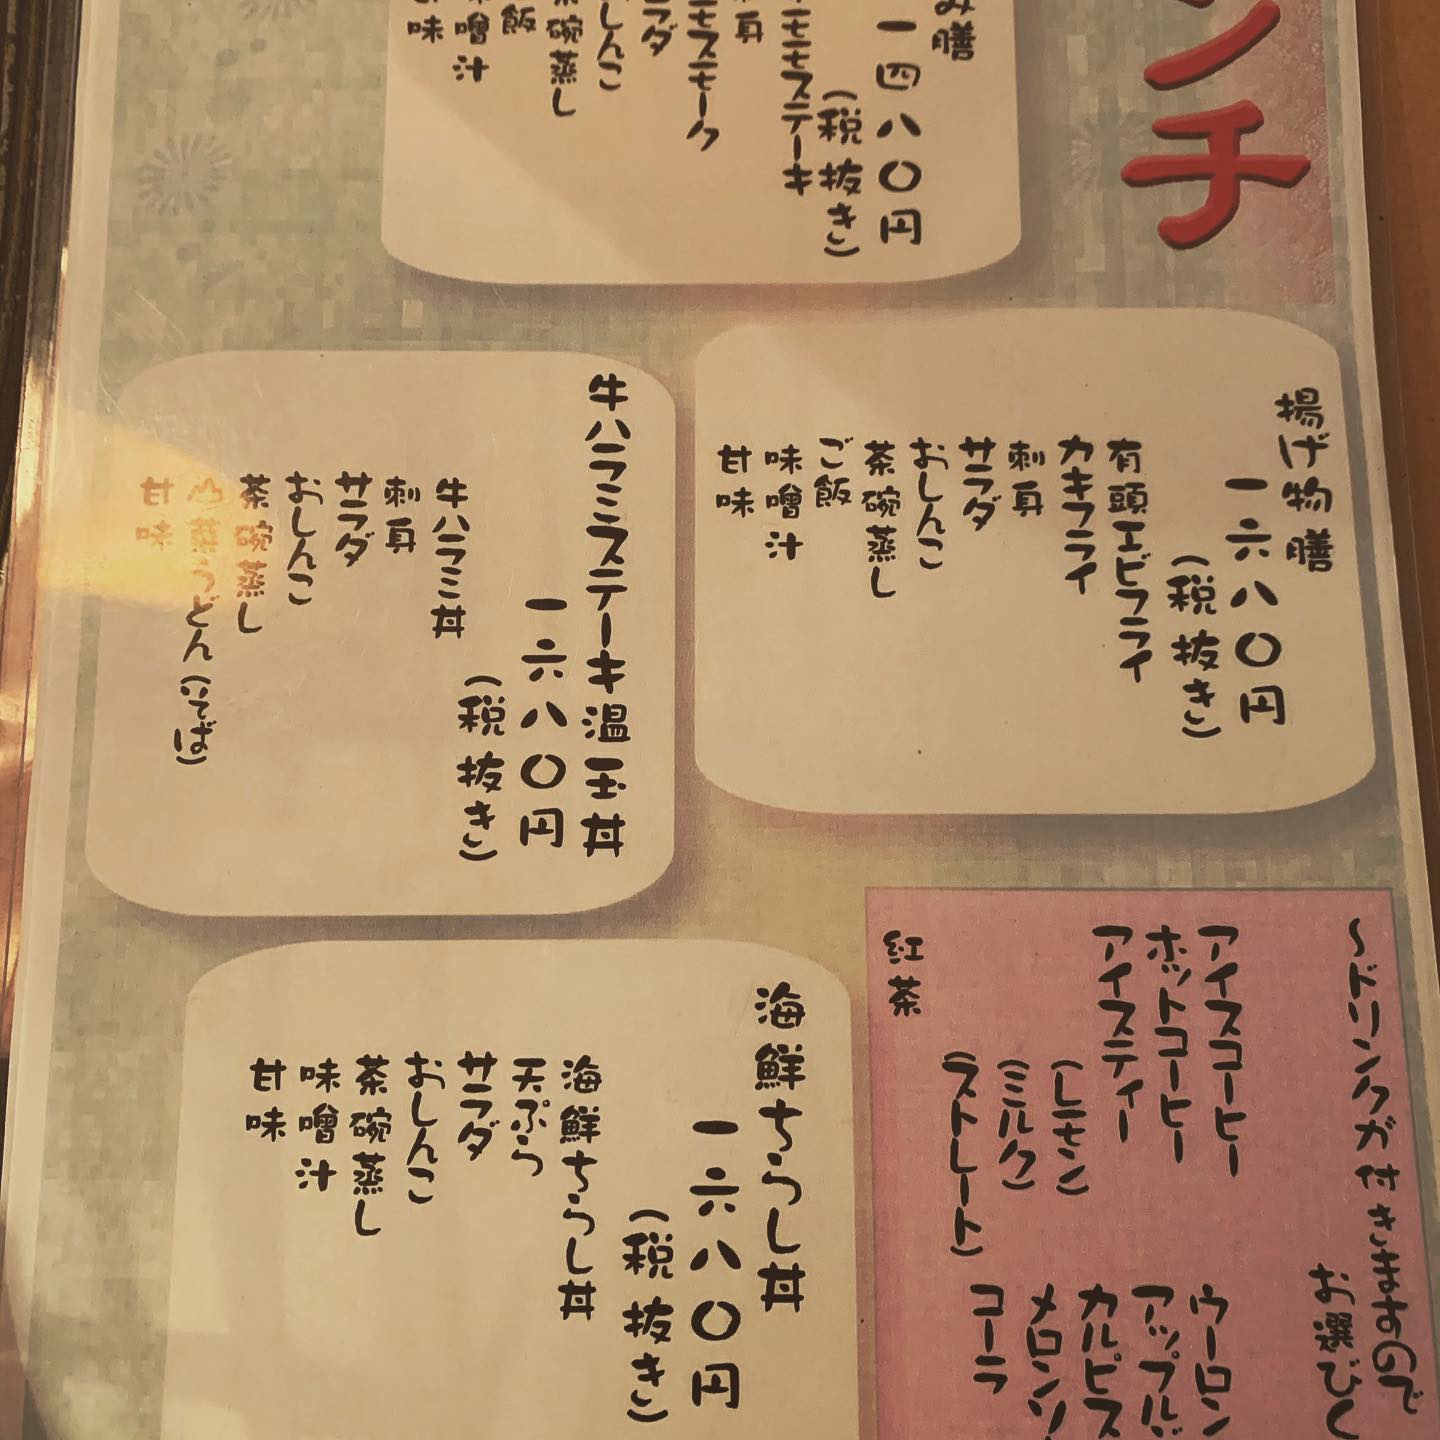 ンチ
み膳
一四八〇円
(税抜き)
モモステーキ
刺身
モモスモーク
サラダ
おしんこ
茶碗蒸し
ご飯
味噌汁
甘味
揚げ物膳
一六八〇円
(税抜き)
有頭エビフライ
カキフライ
刺身
サラダ
おしんこ
茶碗蒸し
ご飯
味噌汁
甘味
牛ハラミステーキ温玉丼
一六八〇円
(税抜き)
牛ハラミ丼
刺身
サラダ
おしんこ
茶碗蒸し
山菜うどん(そば)
甘味
〜ドリンクが付きますので
お選びく
アイスコーヒー
ホットコーヒー
アイスティー
(レモン)
(ミルク)
(ストレート)
紅茶
ウーロン
アップル
カルピス
メロンソ
コーラ
海鮮ちらし丼
一六八〇円
(税抜き)
海鮮ちらし丼
天ぷら
サラダ
おしんこ
茶碗蒸し
味噌汁
甘味